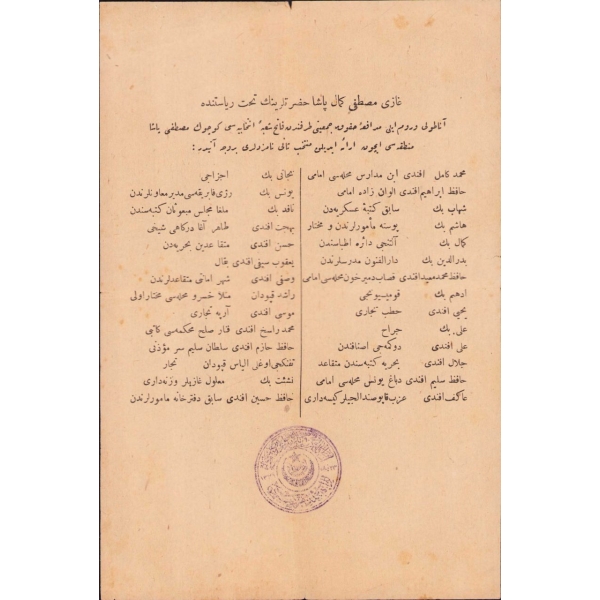 غازی مصطفی کمال پاشا حضرتلرینك تحت ریاستنده
آناطولی وروم ایلی مدافعهٔ حقوق جمعیتی طرفندن فاتح شعبهٔ انتخابیه سی کوچوك مصطفی پاشا
منطقه سی ایچون ارائه ایدیلن منتخب ثانی نامزدلری بروجه آتیدر :
محمد کامل افندی ابن مدارس محله سی امامی
حافظ ابراهیم افندی الوان زاده امامی
شهاب بك سابق کتبهٔ عسکریه دن
هاشم بك پوسته مأمورلرندن و مختار
کمال بك آلتنجی دائره اطباسندن
بدرالدین بك دارالفنون مدرسلرندن
حافظ محمد سعید افندی قصاب دمیرخون محله سی امامی
ادهم بك قومیسیونجی
یحیی افندی حطب تجاری
علی بك جراح
علی افندی دوکمه جی اصنافندن
جلال افندی بحریه کتبه سندن متقاعد
حافظ سلیم افندی دباغ یونس محله سی امامی
عاکف افندی عزب قاپو صندالجیلر کیسه داری
نجاتی بك اجزاجی
یونس بك رژی فابریقه سی مدیر معاونلرندن
نافذ بك ملغا مجلس مبعوثان کتبه سندن
بهجت افندی طاهر آغا درکاهی شیخی
حسن افندی متقاعدین بحریه دن
یعقوب سیفی افندی بقال
وصفی افندی شهر امانتی متقاعدلرندن
راشد قپودان منلا خسرو محله سی مختار اولی
موسی افندی آرپه تجاری
محمد راسخ افندی قنار صلح محکمه سی کاتبی
حافظ حازم افندی سلطان سلیم سر مؤذنی
تفنکجی اوغلی الیاس قپودان تجار
نشئت بك معلول غازیلر وزنه داری
حافظ حسین افندی سابق دفترخانه مامورلرندن